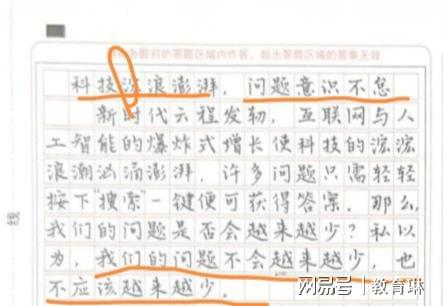 请在各题目的答题区域内作答，超出答题区域的答案无效
科技浪澎湃，问题意识不怠
新时代云程发轫，互联网与人
工智能的爆炸式增长使科技的滚滚
浪潮汹涌澎湃，许多问题只需轻轻
按下“搜索”一键便可获得答案。那么，
我们的问题是否会越来越少？私以
为，我们的问题不会越来越少，也
不应该越来越少。
线
搜狐号|教育琳